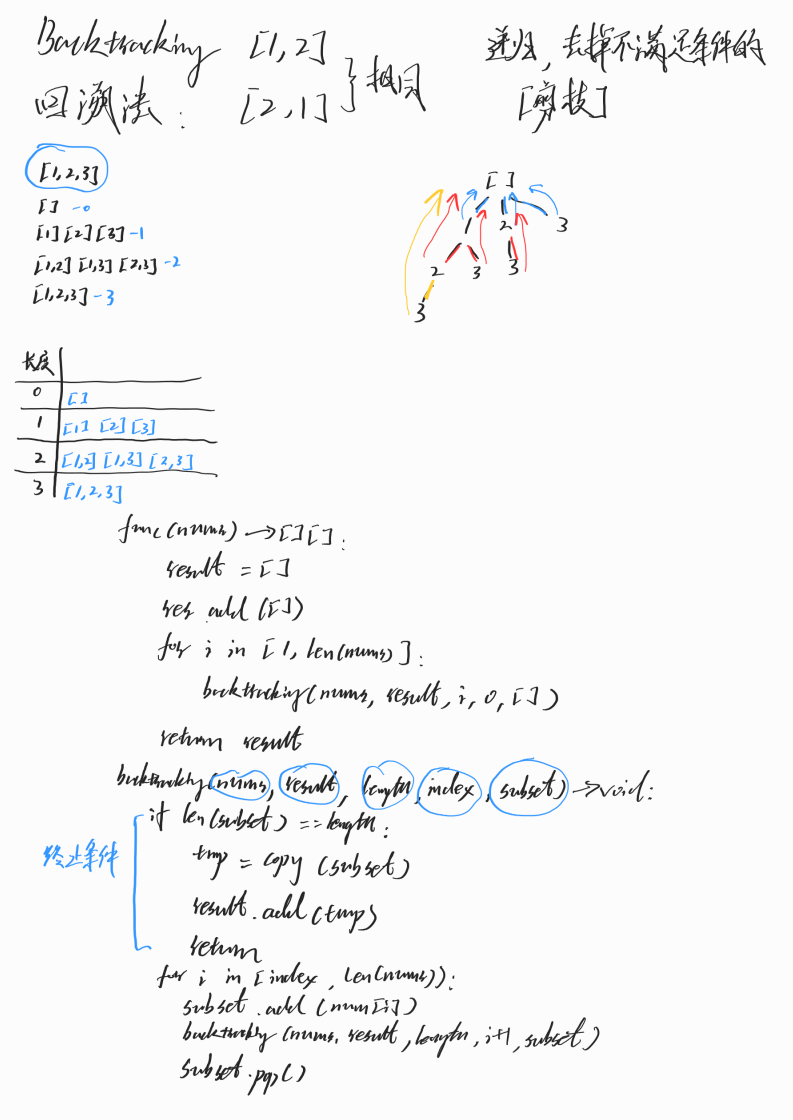 Backtracking [1,2] } 相同 递归, 去掉不满足条件的
回溯法: [2,1] [剪枝]
[1,2,3]
[] -0
[1] [2] [3] -1
[1,2] [1,3] [2,3] -2
[1,2,3] -3
[]
1 2 3
2 3 3
3
长度
0 []
1 [1] [2] [3]
2 [1,2] [1,3] [2,3]
3 [1,2,3]
func(nums) → [][]:
result = []
res.add([])
for i in [1, len(nums)]:
backtracking(nums, result, i, 0, [])
return result
backtracking(nums, result, length, index, subset) → void:
if len(subset) == length:
终止条件
tmp = copy (subset)
result.add(tmp)
return
for i in [index, len(nums)):
subset.add (num[i])
backtracking (nums, result, length, i+1, subset)
subset.pop()